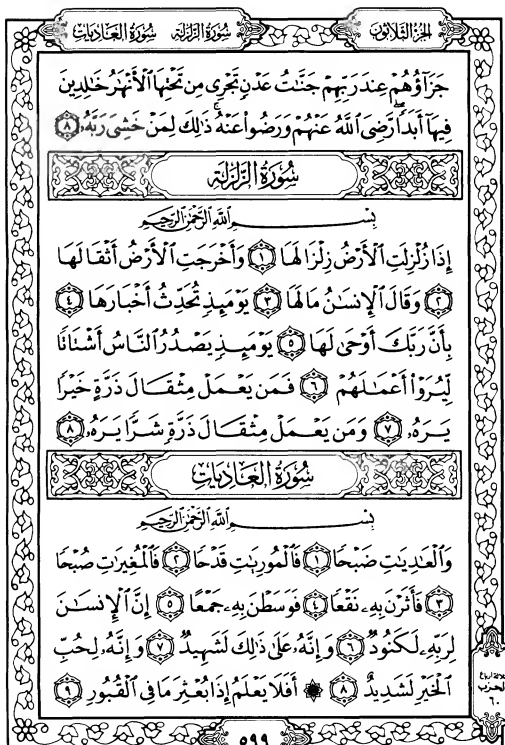 سُورَةُ الزَّلْزَلَةِ سُورَةُ العَادِيَاتِ
الجُزْءُ الثَّلَاثُونَ
جَزَآؤُهُمْ عِندَ رَبِّهِمْ جَنَّٰتُ عَدْنٍ تَجْرِى مِن تَحْتِهَا ٱلْأَنْهَٰرُ خَٰلِدِينَ
فِيهَآ أَبَدًا ۖ رَّضِىَ ٱللَّهُ عَنْهُمْ وَرَضُوا۟ عَنْهُ ۚ ذَٰلِكَ لِمَنْ خَشِىَ رَبَّهُۥ ٨
سُورَةُ الزَّلْزَلَةِ
بِسْمِ ٱللَّهِ ٱلرَّحْمَٰنِ ٱلرَّحِيمِ
إِذَا زُلْزِلَتِ ٱلْأَرْضُ زِلْزَالَهَا ١ وَأَخْرَجَتِ ٱلْأَرْضُ أَثْقَالَهَا
٢ وَقَالَ ٱلْإِنسَٰنُ مَا لَهَا ٣ يَوْمَئِذٍ تُحَدِّثُ أَخْبَارَهَا ٤
بِأَنَّ رَبَّكَ أَوْحَىٰ لَهَا ٥ يَوْمَئِذٍ يَصْدُرُ ٱلنَّاسُ أَشْتَاتًا
لِّيُرَوْا۟ أَعْمَٰلَهُمْ ٦ فَمَن يَعْمَلْ مِثْقَالَ ذَرَّةٍ خَيْرًا
يَرَهُۥ ٧ وَمَن يَعْمَلْ مِثْقَالَ ذَرَّةٍ شَرًّا يَرَهُۥ ٨
سُورَةُ العَادِيَاتِ
بِسْمِ ٱللَّهِ ٱلرَّحْمَٰنِ ٱلرَّحِيمِ
وَٱلْعَٰدِيَٰتِ ضَبْحًا ١ فَٱلْمُورِيَٰتِ قَدْحًا ٢ فَٱلْمُغِيرَٰتِ صُبْحًا
٣ فَأَثَرْنَ بِهِۦ نَقْعًا ٤ فَوَسَطْنَ بِهِۦ جَمْعًا ٥ إِنَّ ٱلْإِنسَٰنَ
لِرَبِّهِۦ لَكَنُودٌ ٦ وَإِنَّهُۥ عَلَىٰ ذَٰلِكَ لَشَهِيدٌ ٧ وَإِنَّهُۥ لِحُبِّ
ٱلْخَيْرِ لَشَدِيدٌ ٨ ۞ أَفَلَا يَعْلَمُ إِذَا بُعْثِرَ مَا فِى ٱلْقُبُورِ ٩
ثلاثة أرباع
الحزب
٦٠
٥٩٩